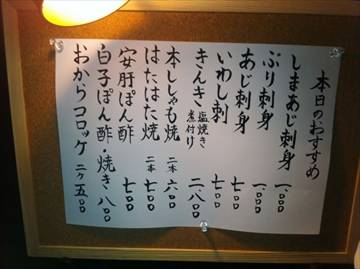 本日のおすすめ
しまあじ刺身 一、〇〇〇
ぶり刺身 一、〇〇〇
あじ刺身 七〇〇
いわし刺 七〇〇
きんき 塩焼き 煮付け 二、八〇〇
本ししゃも焼 二本 六〇〇
はたはた焼 二本 七〇〇
安肝ぽん酢 七〇〇
白子ぽん酢・焼き 八〇〇
おからコロッケ 二ケ 五〇〇